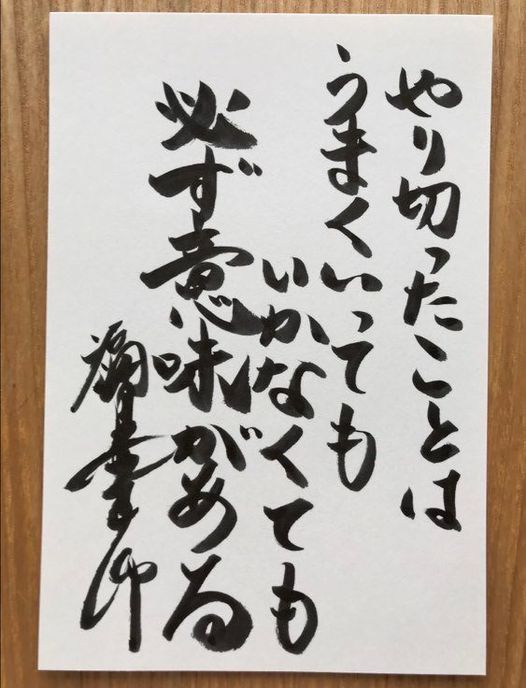 やり切ったことは
うまくいっても
いかなくても
必ず意味がある